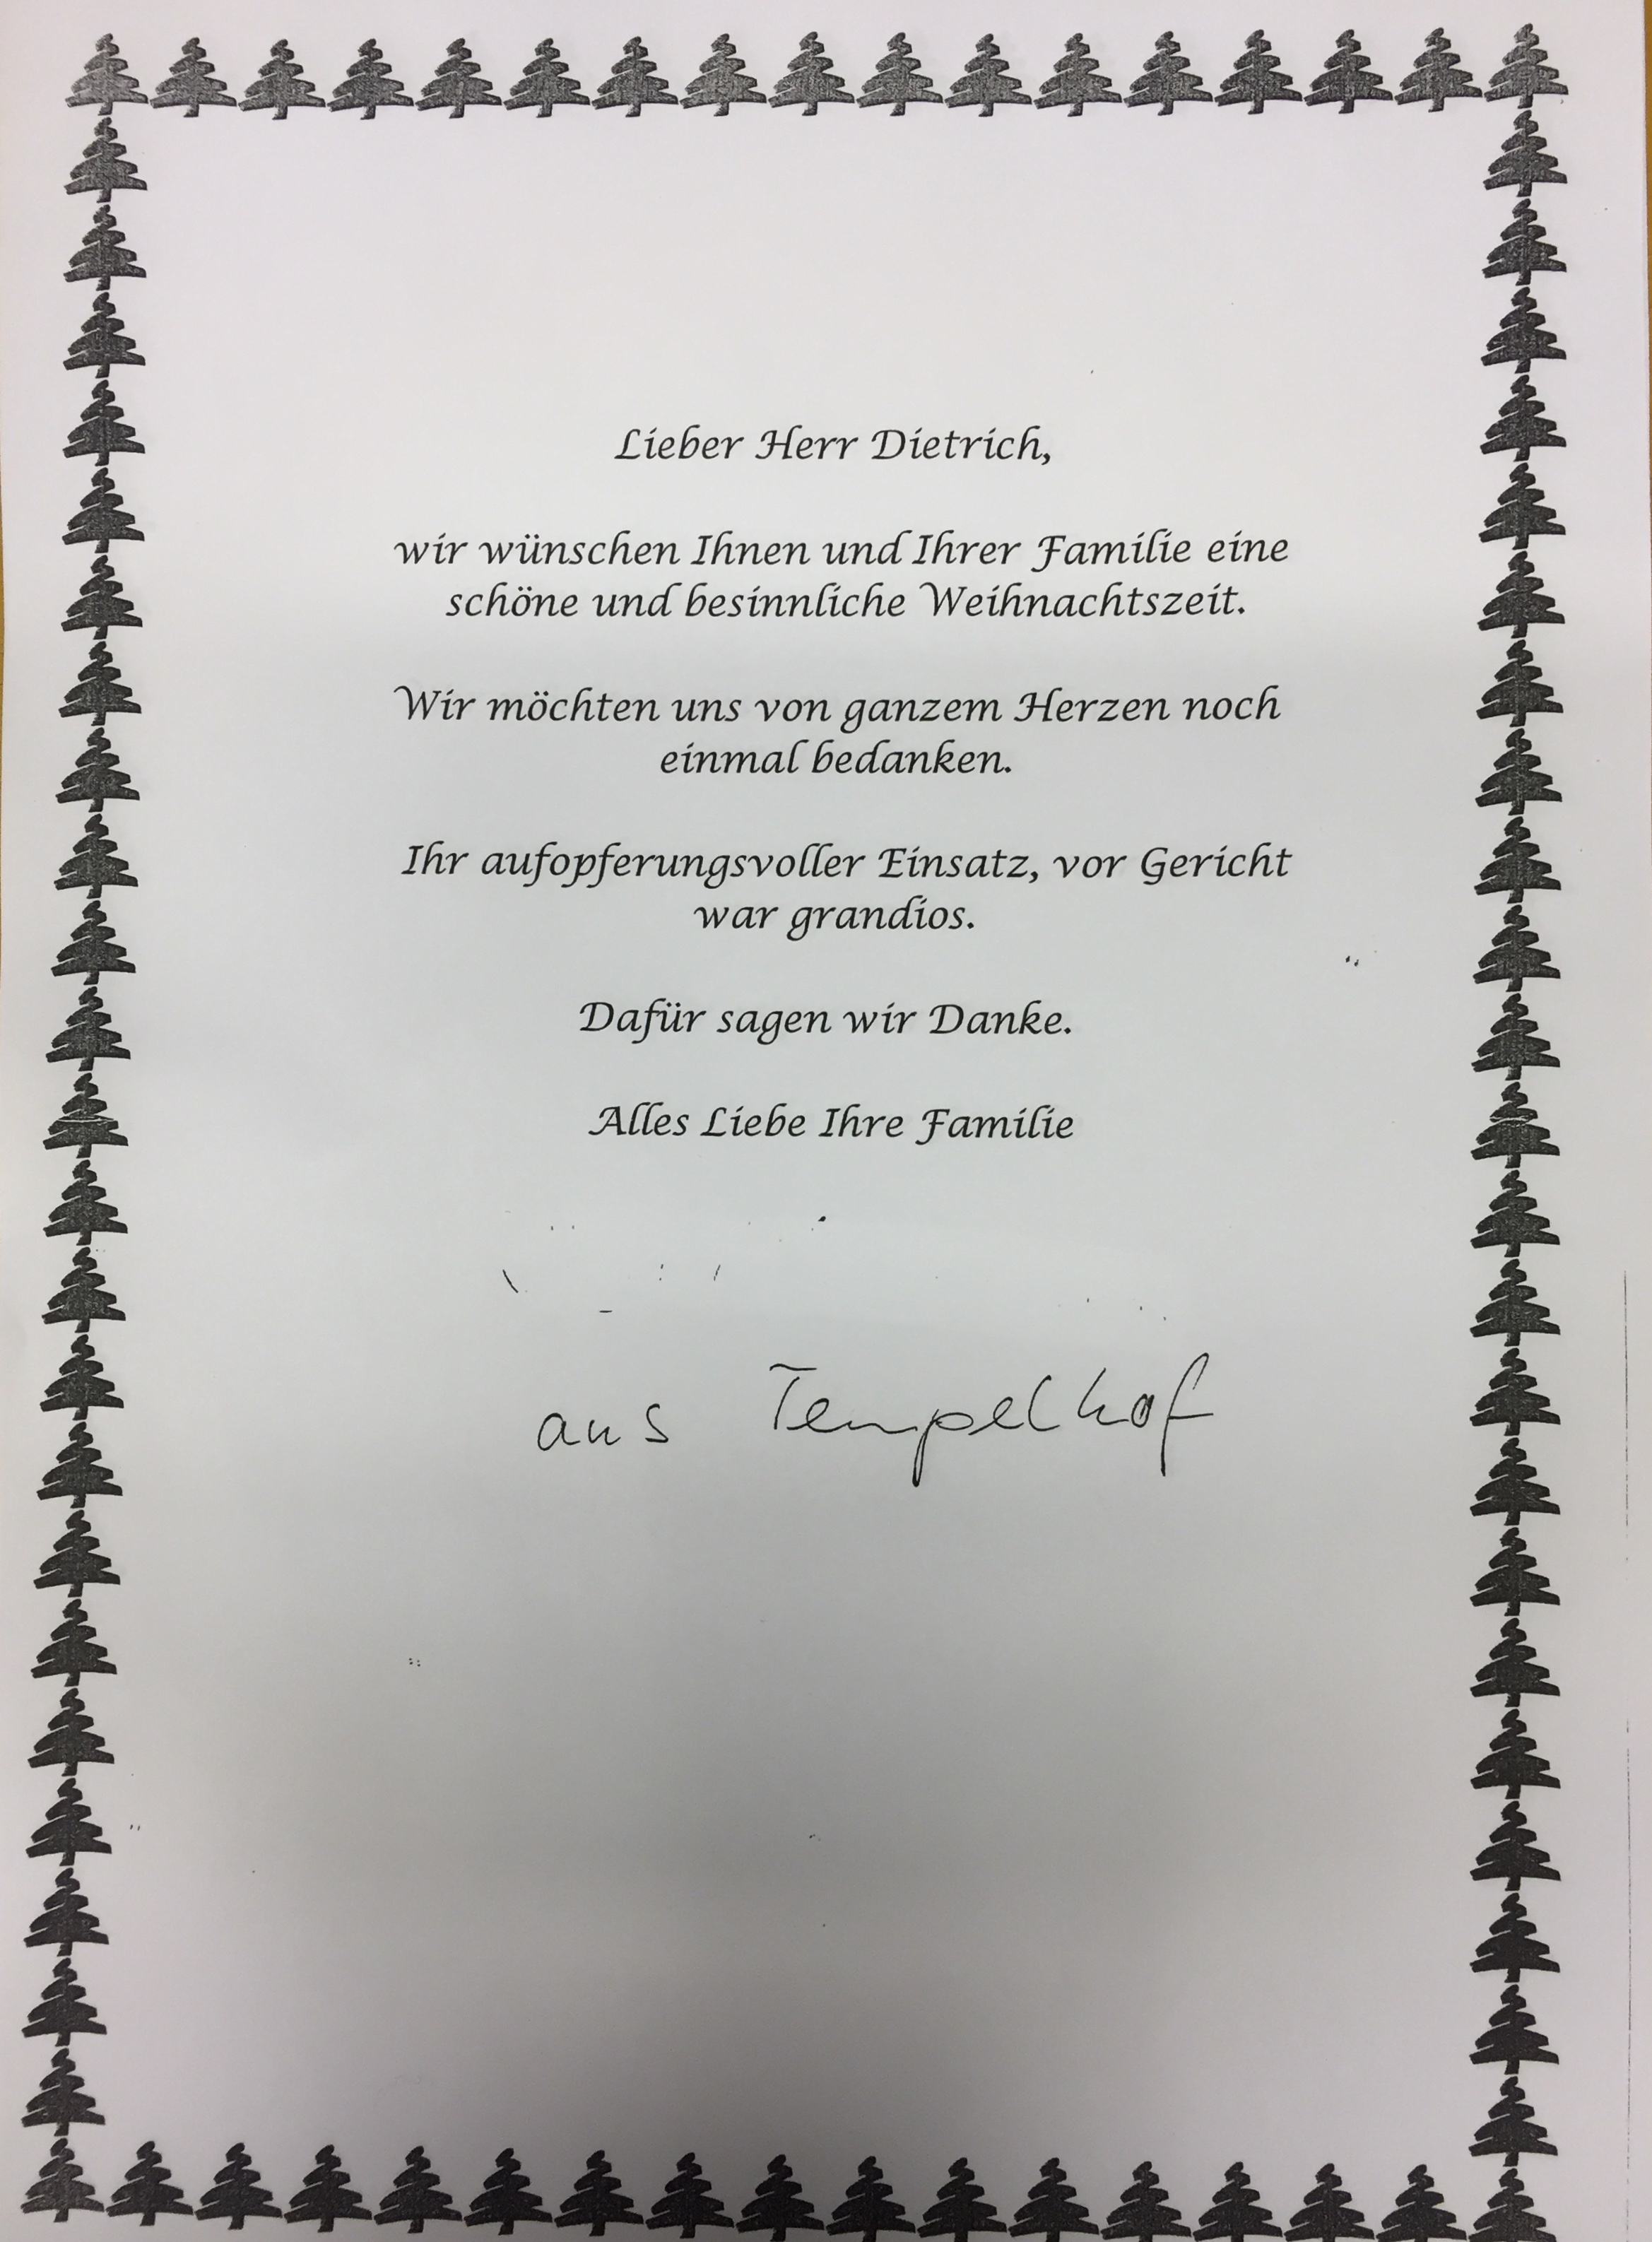 Lieber Herr Dietrich,
wir wünschen Ihnen und Ihrer Familie eine
schöne und besinnliche Weihnachtszeit.
Wir möchten uns von ganzem Herzen noch
einmal bedanken.
Ihr aufopferungsvoller Einsatz, vor Gericht
war grandios.
Dafür sagen wir Danke.
Alles Liebe Ihre Familie
aus Tempelhof